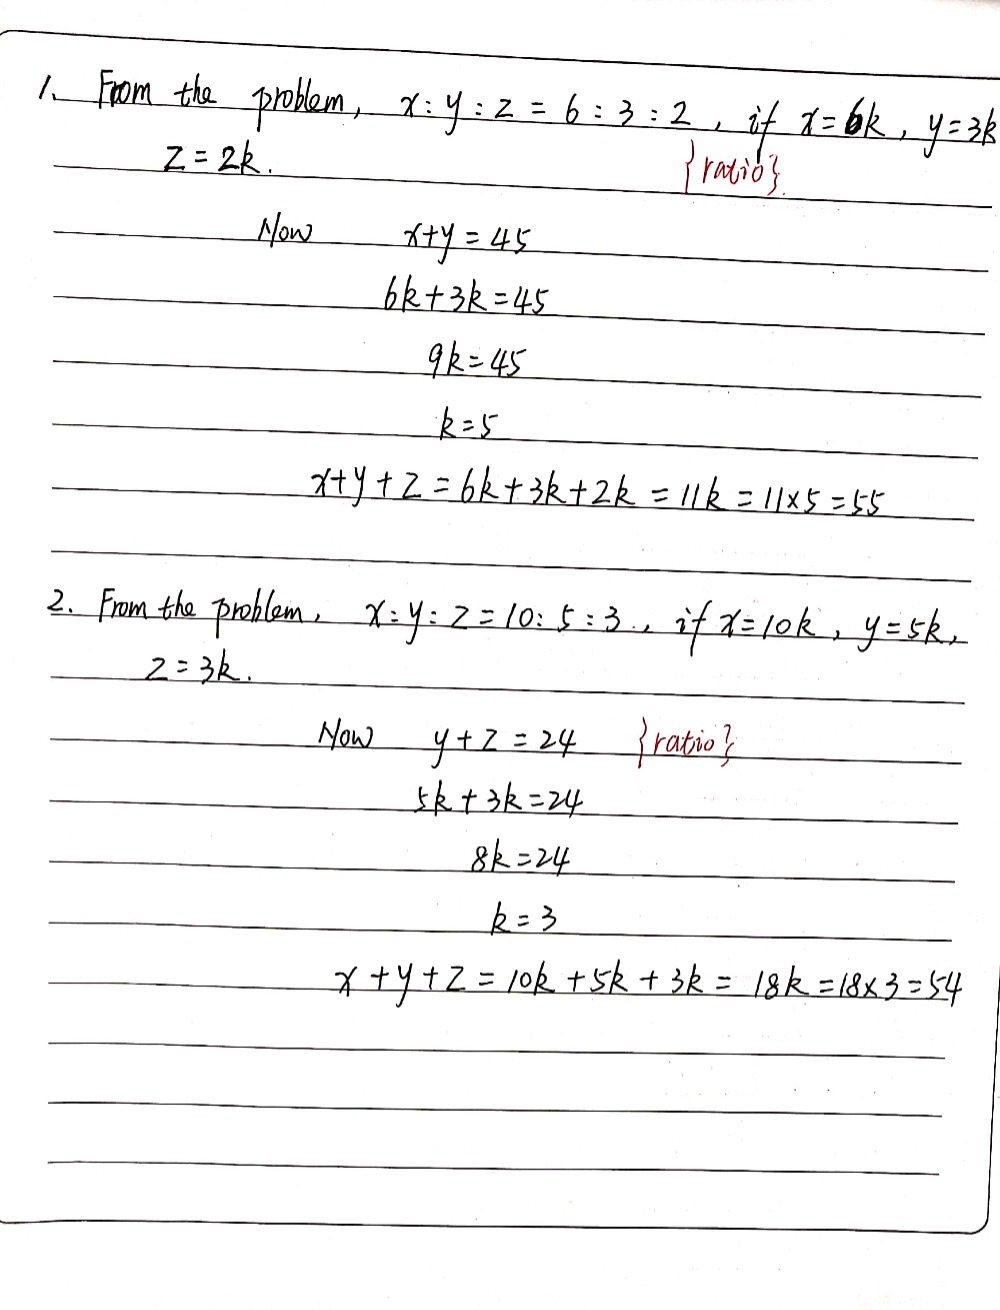 1. From the problem, x:y:z = 6:3:2, if x=6k, y=3k
z=2k. {ratio}.
Now x+y=45
6k+3k=45
9k=45
k=5
x+y+z=6k+3k+2k=11k=11×5=55
2. From the problem, x:y:z=10:5:3., if x=10k, y=5k,
z=3k.
Now y+z=24 {ratio}
5k+3k=24
8k=24
k=3
x+y+z=10k+5k+3k=18k=18×3=54